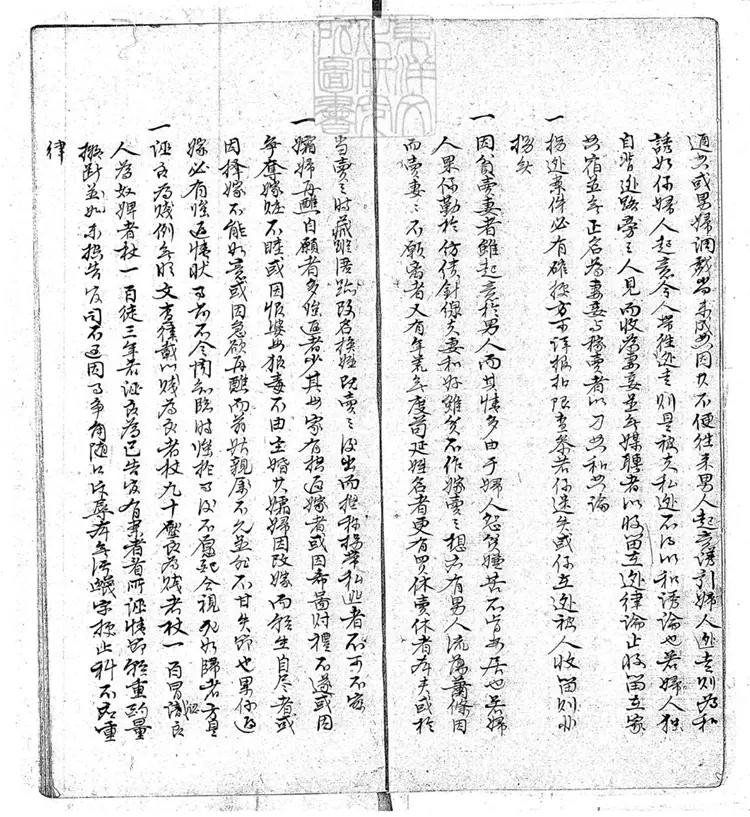 通者或男婦調戲尚未成姦因久不便往來男人起意誘引婦人逃走則為和
誘如係婦人起意令人帶往逃走則是被夫私逃不得以和誘論也若婦人獨
自背逃路旁之人見而收為妻妾並無媒聘者以收留在逃律論止收留在家
共宿並無正名為妻妾與嫁賣者以刁姦和姦論
一 拐逃案件必有確據方可詳報扣限查參若係迷失或係在逃被人收留則非
拐矣
一 因貧賣妻者雖起意於男人而其情多由于婦人怨貧嫌其不肯安居也若婦
人果係勤於仿績針線夫妻和好雖貧不作嫁賣之想亦有男人流蕩蕭條因
而賣妻之不願離者又有年荒年度苟延姓名者更有買休賣休者本夫或於
當賣之時藏匿居趾改名換姓既賣之後出而捏稱拐帶私逃者不可不察
一 孀婦再醮自願者多強逼者少其母家有搶逼嫁者或因希圖財禮不遂或因
爭奪嫁粧不睦或因恨婆姑狠毒不由主婚其孀婦因改嫁而輕生自盡者或
因擇嫁不能如意或因急欲再醮而翁姑親屬不允並非不甘失節也果係逼
嫁必有強逼情狀事前不令聞知臨時強於事後不為配合視死如歸者方是
一 誣良為賤例無明文查律載以賤為良者杖九十壓良為賤者杖一百冒認良
人為奴婢者杖一百徒三年若誣良為已告官有事者看所誣情節輕重酌量
擬斷並如未控告官司不過因事爭角隨口污辱本無污衊字據止科不應重
律